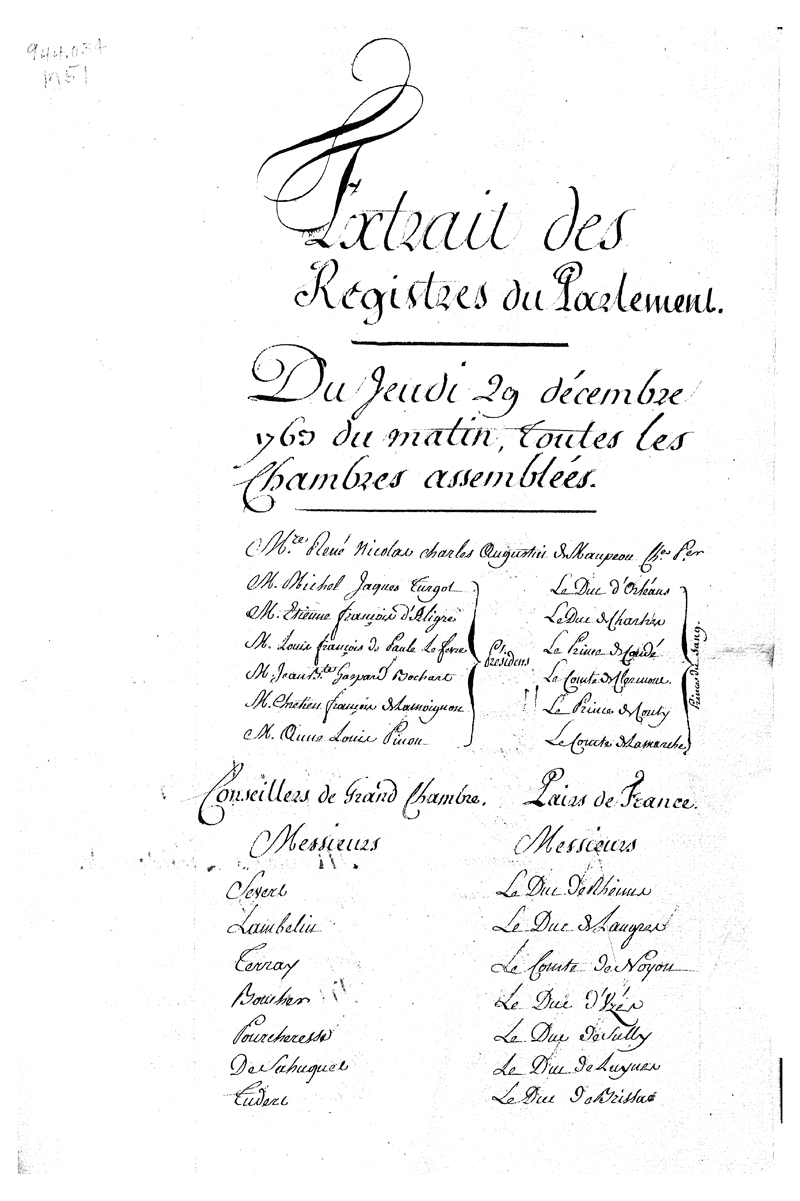 944.034
M51
Extrait des
Registres du Parlement.
Du Jeudi 29 décembre
1763 du matin, toutes les
Chambres assemblées.
M.re René Nicolas Charles Augustin de Maupeou Ch.er P.er
M. Michel Jaques Turgot
M. Etienne françois d'Aligre
M. Louis françois de Paule Le fevre
M. Jean B.te Gaspard Bochart
M. Chrétien françois de Lamoignon
M. Anne Louis Pinon
Présidens
Le Duc d'Orléans
Le Duc de Chartres
Le Prince de Condé
Le Comte de Clermont
Le Prince de Conty
Le Comte de Lamarche
Princes du Sang.
Conseillers de Grand Chambre.
Messieurs
Severt
Lambelin
Terray
Boucher
Pourcheresse
De Sahuguet
Tudert
Pairs de France.
Messieurs
Le Duc de Rheims
Le Duc de Langres
Le Comte de Noyon
Le Duc d'Uzés
Le Duc de Sully
Le Duc de Luynes
Le Duc de Brissac